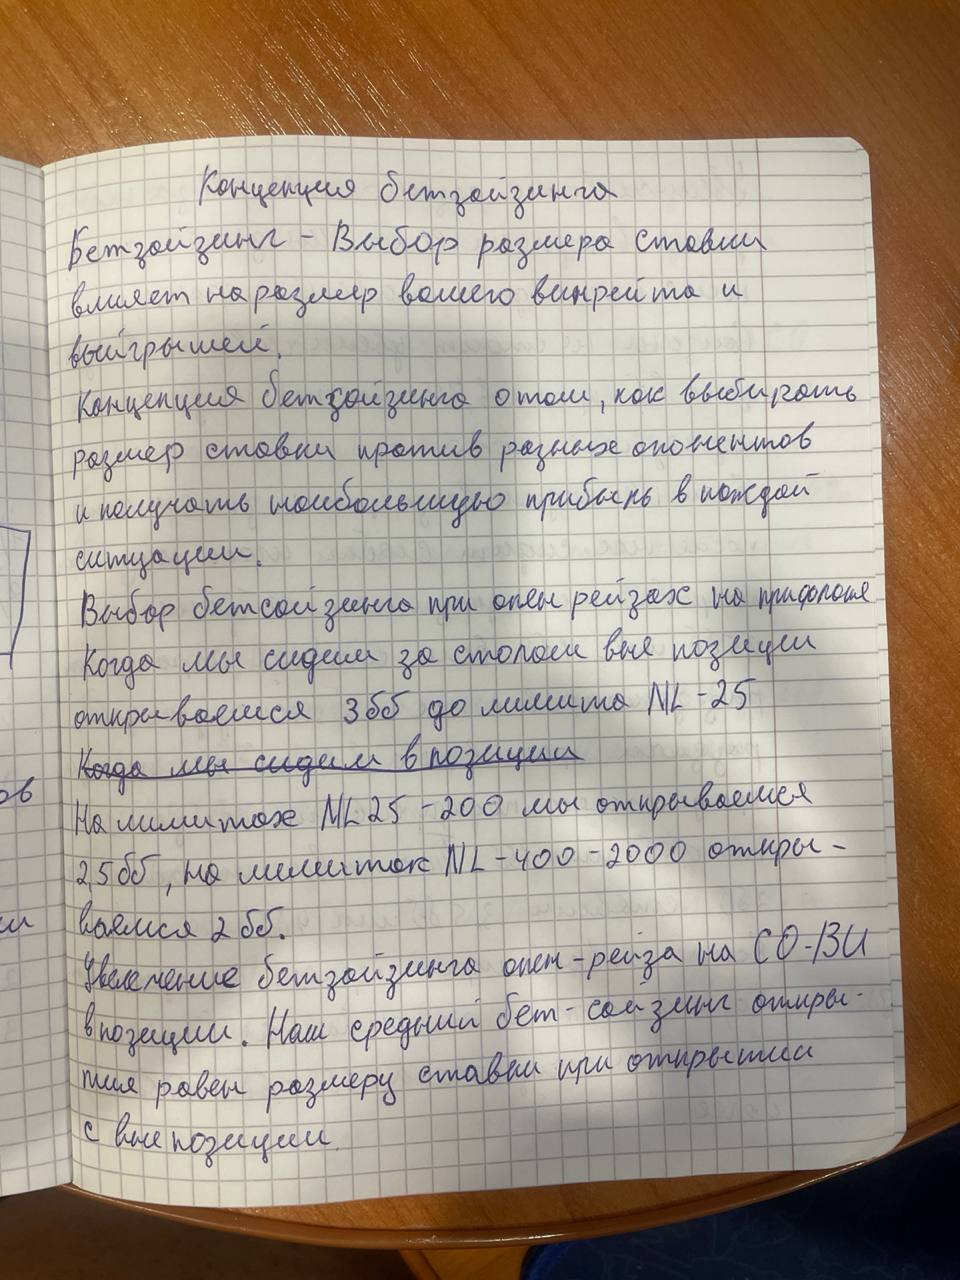 Концепция бетзайзинга
Бетзайзинг - Выбор размера ставки
влияет на размер вашего винрейта и
выйгрышей.
Концепция бетзайзинга о том, как выбирать
размер ставки против разных опонентов
и получать наибольшую прибыль в каждой
ситуации.
Выбор бетсайзинга при опен рейзах на префлопе
Когда мы сидим за столом вне позиции
открываемся 3бб до лимита NL-25
Когда мы сидим в позиции
На лимитах NL25-200 мы открываемся
2,5бб, на лимитах NL-400-2000 откры-
ваемся 2бб.
Увеличение бетзайзинга опен-рейза на CO-BU
в позиции. Наш средний бет-сайзинг откры-
тия равен размеру ставки при открытии
с вне позиции.
ов